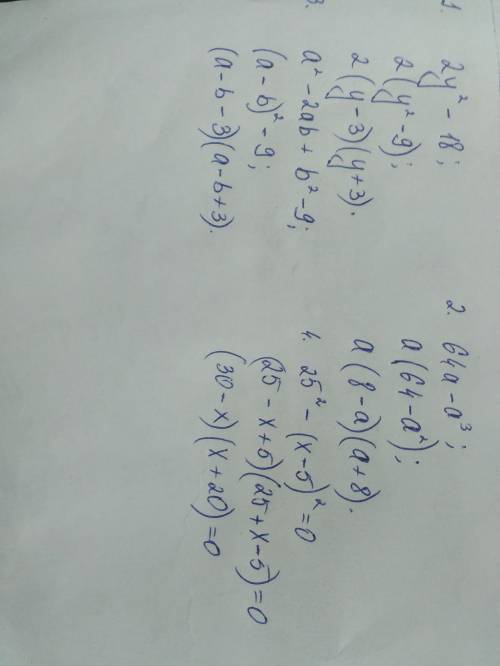 1. 2y² - 18;
2(y² - 9);
2(y - 3)(y + 3).
3. a² - 2ab + b² - 9;
(a - b)² - 9;
(a - b - 3)(a - b + 3).
2. 64a - a³;
a(64 - a²);
a(8 - a)(a + 8).
4. 25² - (x - 5)² = 0
(25 - x + 5)(25 + x - 5) = 0
(30 - x)(x + 20) = 0